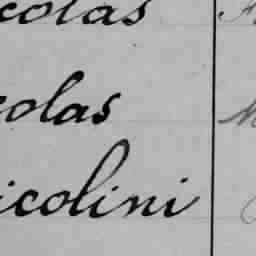 colas
colas
icolini